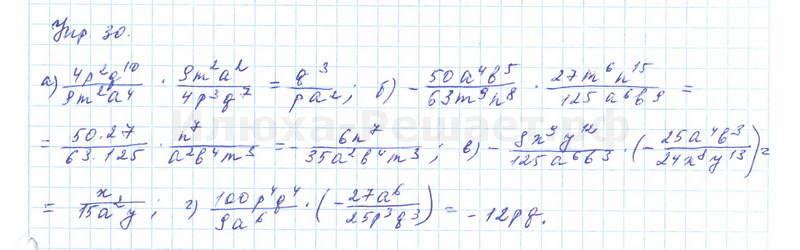 Упр 30.
а) 4p²q¹⁰/9m²a⁴ · 9m²a²/4p³q⁷ = q³/pa²; б) -50a⁴b⁵/63m⁹n⁸ · 27m⁶n¹⁵/125a⁶b⁹ =
= 50·27/63·125 · n⁷/a²b⁴m³ = -6n⁷/35a²b⁴m³; в) -8x⁹y¹²/125a⁶b³ · (-25a⁴b³/24x⁸y¹³) =
= x/15a²y; г) 100p⁴q⁴/9a⁶ · (-27a⁶/25p³q³) = -12pq.